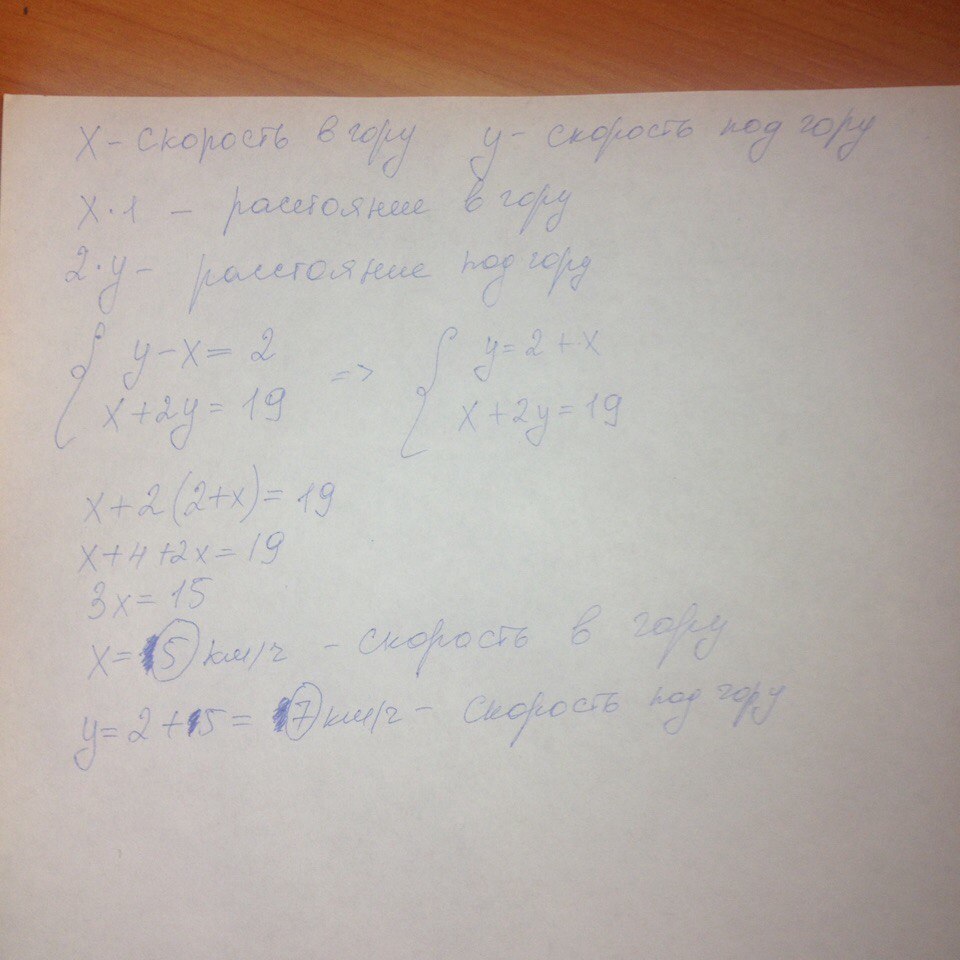 X - скорость в гору   y - скорость под гору
X·1 - расстояние в гору
2·y - расстояние под гору
{ y-x=2   =>   { y=2+x
x+2y=19   x+2y=19
x+2(2+x)=19
x+4+2x=19
3x=15
x=5 км/ч - скорость в гору
y=2+5=7 км/ч - скорость под гору